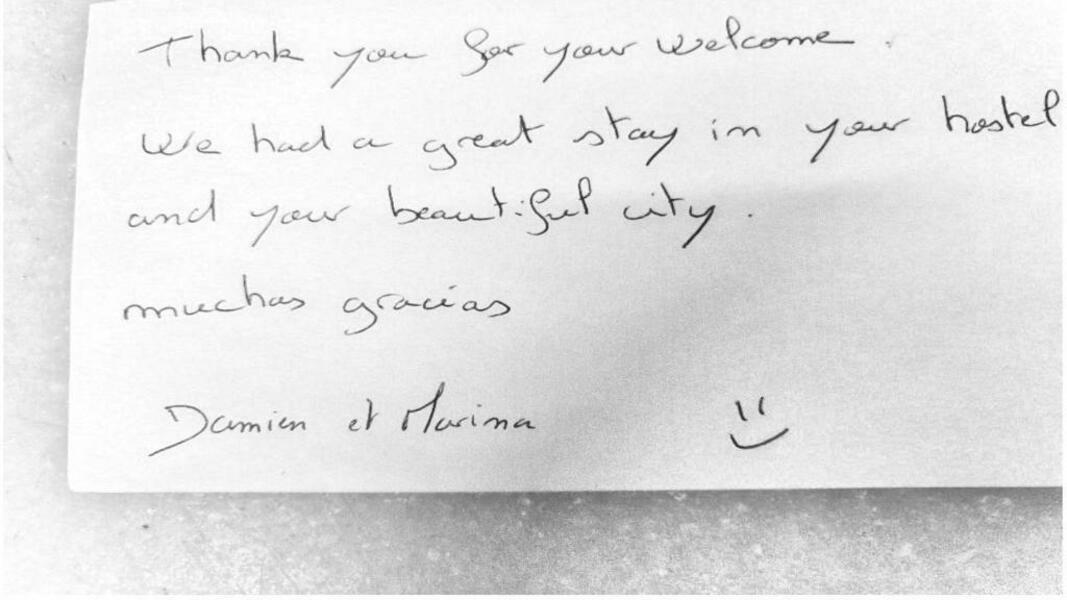 Thank you for your welcome.
We had a great stay in your hostel
and your beautiful city.
muchas gracias
Damien et Marina